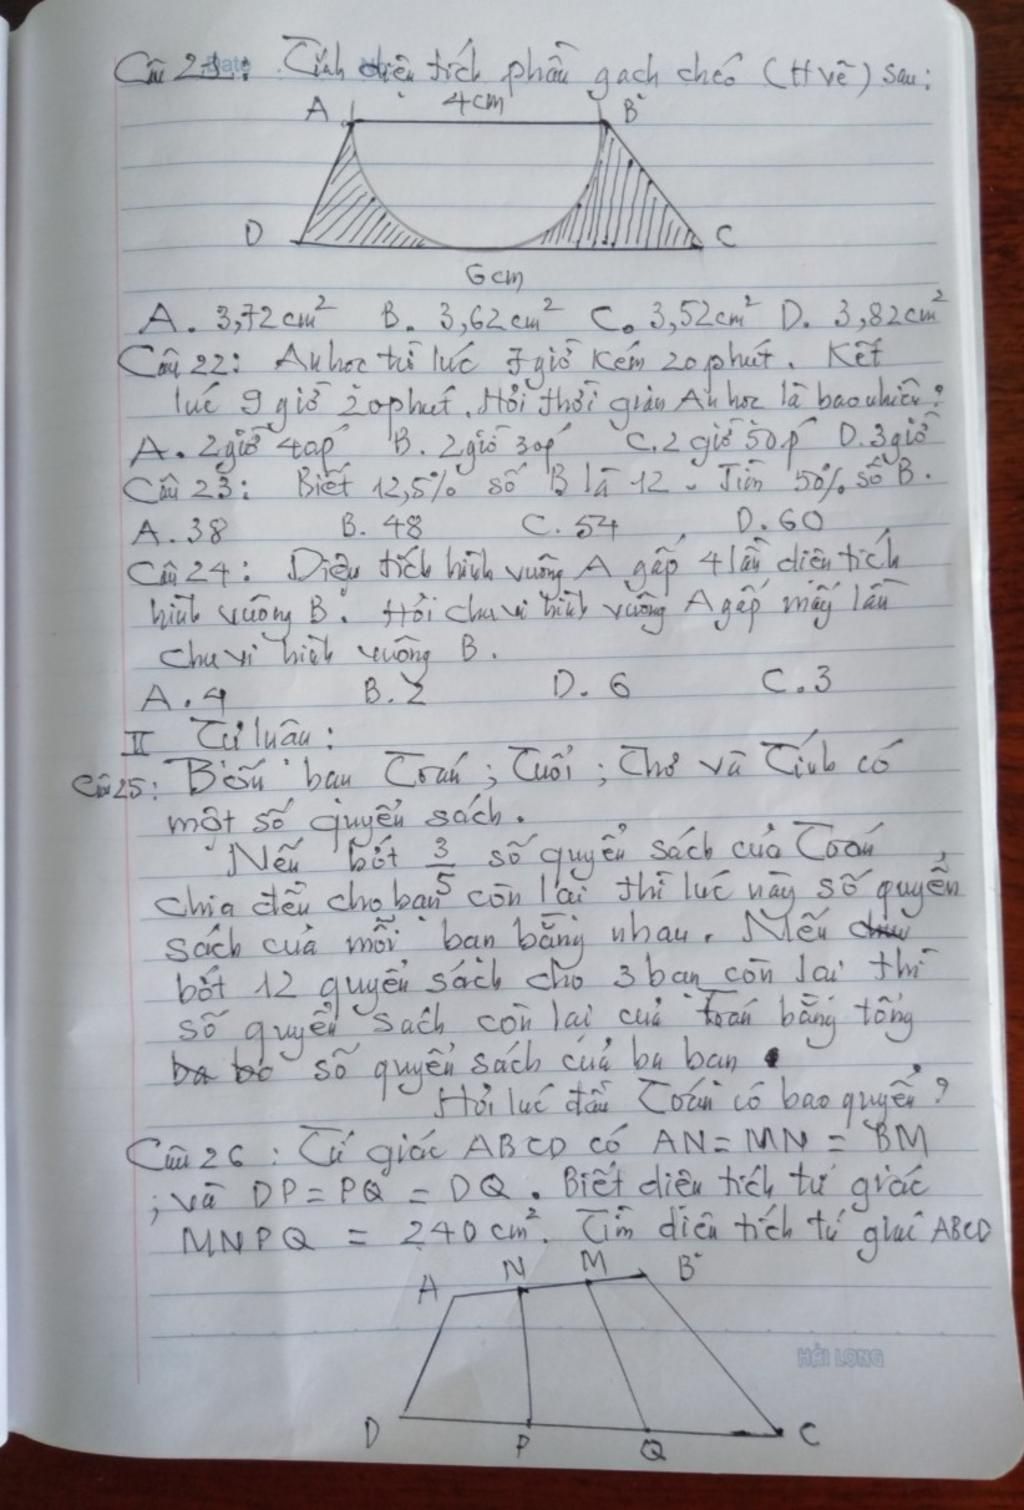 Câu 21: Tính diện tích phần gạch chéo (Hvẽ) sau:
A 4cm B
D C
6cm
A. 3,72cm² B. 3,62cm² C. 3,52cm² D. 3,82cm²
Câu 22: An học từ lúc 7giờ kém 20phút. Kết
lúc 9giờ 20phút. Hỏi thời gian An học là bao nhiêu?
A. 2giờ 40p B. 2giờ 30p C. 2 giờ 50p D. 3giờ
Câu 23: Biết 12,5% số B là 12. Tìm 50% số B.
A. 38 B. 48 C. 54 D. 60
Câu 24: Diện tích hình vuông A gấp 4 lần diện tích
hình vuông B. Hỏi chu vi hình vuông A gấp mấy lần
chu vi hình vuông B.
A. 4 B. 2 D. 6 C. 3
II Tự luận:
Câu 25: Bốn bạn Toán; Tuổi; Thơ và Tính có
một số quyển sách.
Nếu bớt 3/5 số quyển sách của Toán
chia đều cho bạn còn lại thì lúc này số quyển
sách của mỗi bạn bằng nhau. Nếu
bớt 12 quyển sách cho 3 bạn còn lại thì
số quyển sách còn lại của Toán bằng tổng
số quyển sách của ba bạn
Hỏi lúc đầu Toán có bao quyển?
Câu 26: Tứ giác ABCD có AN = MN = BM
; và DP = PQ = DQ. Biết diện tích tứ giác
MNPQ = 240 cm². Tìm diện tích tứ giác ABCD
A N M B
HẢI LONG
D P Q C